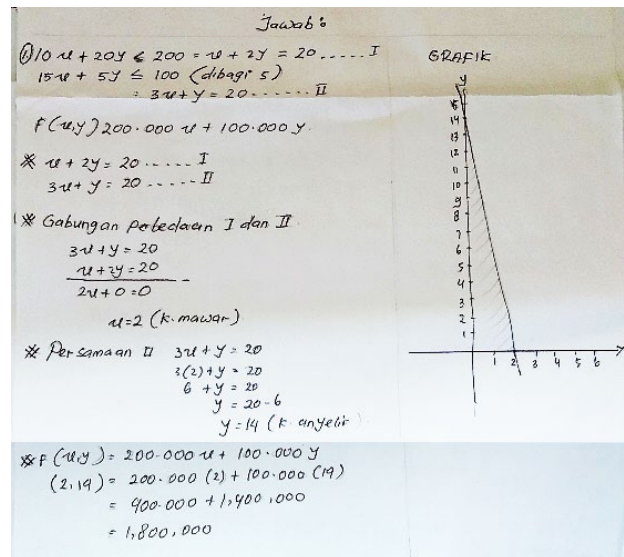 Jawab :
① 10 x + 20y ≤ 200 = x + 2y = 20 ..... I
15x + 5y ≤ 100 (dibagi 5)
: 3x + y = 20 ...... II
F(x,y) 200.000 x + 100.000 y.
※ x + 2y = 20 ..... I
3x + y = 20 ..... II
※ Gabungan perbedaan I dan II
3x + y = 20
x + 2y = 20
2x + 0 = 0 -
x = 2 (k. mawar)
※ Persamaan II 3x + y = 20
3(2) + y = 20
6 + y = 20
y = 20 - 6
y = 14 (k anyelir)
※ F (x,y) = 200.000 x + 100.000 y
(2,14) = 200.000 (2) + 100.000 (14)
= 400.000 + 1,400,000
= 1,800,000
GRAFIK
y
15
14
13
12
11
10
9
8
7
6
5
4
3
2
1
1 2 3 4 5 6